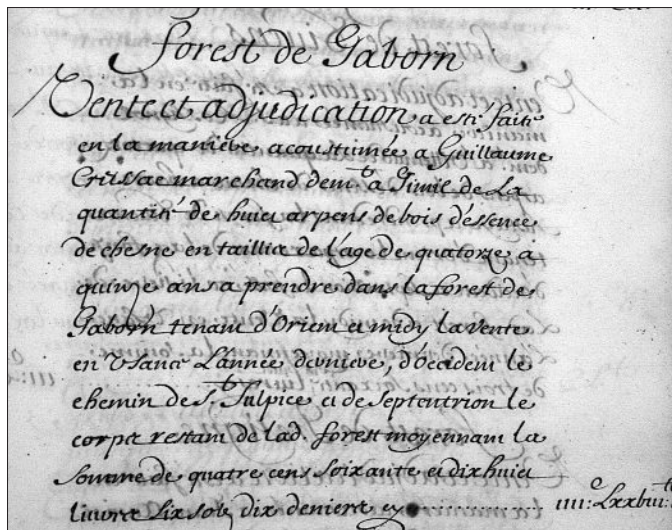 forest de Gaborn
Vente et adjudication a esté faite
en la maniere acoustumée a Guillaume
Crissac marchand dem.t a Gimil de La
quantité de huict arpens de bois d'essence
de chesne en taillix de l'age de quatorze a
quinze ans a prendre dans la forest de
Gaborn tenant d'Orient et midy la vente
en Usance L'année derniere, d'Occident le
chemin de S.t Sulpice et de Septentrion le
corps restant de lad. forest moyennant la
Somme de quatre cens soixante et dix huict
livres six sols dix deniers cy ........... IIII:c Lxxbiii: